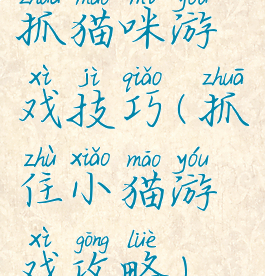 zhuā māo mī yóu
抓猫咪游
xì jì qiǎo zhuā
戏技巧(抓
zhù xiǎo māo yóu
住小猫游
xì gōng lüè
戏攻略)